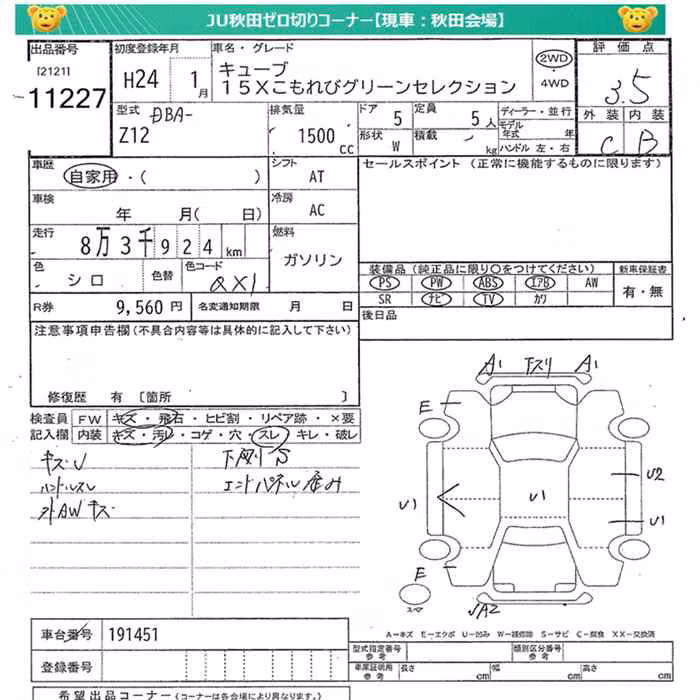 JU秋田ゼロ切りコーナー【現車：秋田会場】
出品番号
[2121]
11227
初度登録年月
H24 1月
車名・グレード
キューブ
15Xこもれびグリーンセレクション
2WD
・
4WD
評価点
3.5
外装 内装
C B
型式 DBA-
Z12
排気量
1500 cc
ドア 5
形状 W
定員 5人
積載 kg
ディーラー・並行
モデル年式 年
ハンドル 左・右
車歴
自家用・( )
車検
年 月( 日)
走行
8万3千924km
色
シロ
色替
色コード
QX1
シフト
AT
冷房
AC
燃料
ガソリン
セールスポイント (正常に機能するものに限ります)
装備品 (純正品に限り○をつけてください)
PS PW ABS エアB AW
SR ナビ TV カワ
新車保証書
有・無
後日品
R券 9,560円
名変通知期限 月 日
注意事項申告欄(不具合内容等は具体的に記入して下さい)
修復歴 有 [箇所 ]
検査員
記入欄
FW キズ・飛石・ヒビ割・リペア跡・×要
内装 キズ・汚レ・コゲ・穴・スレ・キレ・破レ
キズU
ハンドルスレ
外AWキズ
エンドパネル歪み
A1 下スリ A1
E
U1
U1
U2
U1
E
スペア
UA2
A-キズ E-エクボ U-凹み W-補修跡 S-サビ C-腐食 XX-交換済
車台番号 191451
登録番号
型式指定番号
参考
類別区分番号
参考
車庫証明用
参考
長さ cm
幅 cm
高さ cm
希望出品コーナー (コーナーは各会場により異なります)